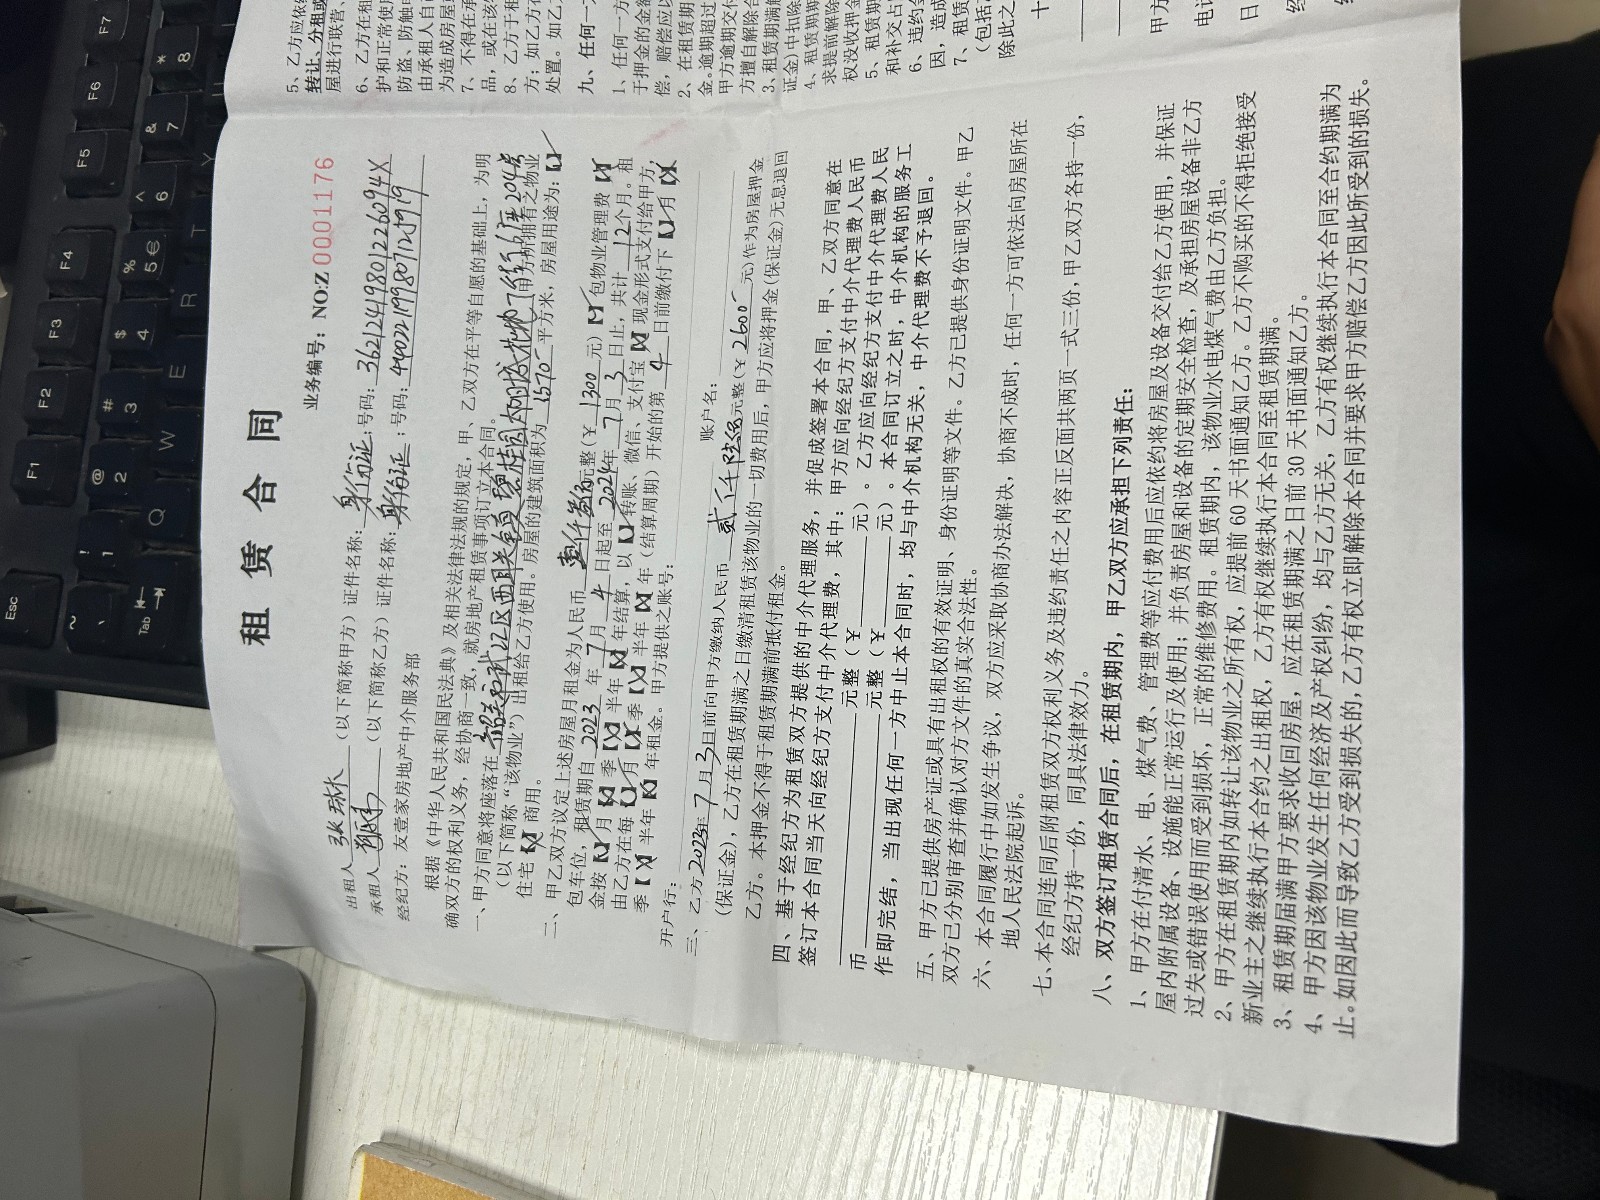 租赁合同
业务编号：NO:Z 0001176
出租人 张球林 (以下简称甲方) 证件名称：身份证；号码：36212449801226094X
承租人 (以下简称乙方) 证件名称：身份证；号码：
经纪方：友壹家房地产中介服务部
根据《中华人民共和国民法典》及相关法律法规的规定，甲、乙双方在平等自愿的基础上，为明
确双方的权利义务，经协商一致，就房地产租赁事项订立本合同。
一、甲方同意将座落在 甲方所拥有之物业
(以下简称“该物业”) 出租给乙方使用。房屋的建筑面积为 平方米，房屋用途为：【】
住宅【】商用。
二、甲乙双方议定上述房屋月租金为人民币 壹仟叁佰元整(￥ 1300 元)【】包物业管理费【】
包车位，租赁期自 2023 年 7 月 4 日起至 2024 年 7 月 3 日止，共计 12 个月。租
金按【】月【】季【】半年【】年结算，以【】转账、微信、支付宝【】现金形式支付给甲方，
由乙方在每【】月【】季【】半年【】年 (结算周期) 开始的第 4 日前缴付下【】月【】
季【】半年【】年租金。甲方提供之账号：
开户行： 账户名：
三、乙方 2023年 7 月 3 日前向甲方缴纳人民币 贰仟陆佰元整(￥ 2600 元)作为房屋押金
(保证金)，乙方在租赁期满之日缴清租赁该物业的一切费用后，甲方应将押金(保证金)无息退回
乙方。本押金不得于租赁期满前抵付租金。
四、基于经纪方为租赁双方提供的中介代理服务，并促成签署本合同，甲、乙双方同意在
签订本合同当天向经纪方支付中介代理费，其中：甲方应向经纪方支付中介代理费人民币
元整(￥ 元)。乙方应向经纪方支付中介代理费人民
币 元整(￥ 元)。本合同订立之时，中介机构的服务工
作即完结，当出现任何一方中止本合同时，均与中介机构无关，中介代理费不予退回。
五、甲方已提供房产证或具有出租权的有效证明、身份证明等文件。乙方已提供身份证明文件。甲乙
双方已分别审查并确认对方文件的真实合法性。
六、本合同履行中如发生争议，双方应采取协商办法解决，协商不成时，任何一方可依法向房屋所在
地人民法院起诉。
七、本合同连同后附租赁双方权利义务及违约责任之内容正反面共两页一式三份，甲乙双方各持一份，
经纪方持一份，同具法律效力。
八、双方签订租赁合同后，在租赁期内，甲乙双方应承担下列责任：
1、甲方在付清水、电、煤气费、管理费等应付费用后应依约将房屋及设备交付给乙方使用，并保证
屋内附属设备、设施能正常运行及使用；并负责房屋和设备的定期安全检查，及承担房屋设备非乙方
过失或错误使用而受到损坏，正常的维修费用。租赁期内，该物业水电煤气费由乙方负担。
2、甲方在租赁期内如转让该物业之所有权，应提前 60 天书面通知乙方。乙方不购买的不得拒绝接受
新业主之继续执行本合约之出租权，乙方有权继续执行本合同至租赁期满。
3、租赁期届满甲方要求收回房屋，应在租赁期满之日前 30 天书面通知乙方。
4、甲方因该物业发生任何经济及产权纠纷，均与乙方无关，乙方有权继续执行本合同至合约期满为
止。如因此而导致乙方受到损失的，乙方有权立即解除本合同并要求甲方赔偿乙方因此所受到的损失。
5、乙方应依
转让、分租或
屋进行联营、
6、乙方在租
护和正常使
防盗、防触
由承租人自
为造成房屋
7、不得在承
品，或在该
8、乙方于租
方；如乙方
处置。如乙
九、任何一
1、任何一方
于押金的金
偿，赔偿应以
2、在租赁期
金。逾期超过
甲方逾期交付
方擅自解除合
3、租赁期满
证金)中扣除
4、租赁期
求提前解除
权没收押金
5、租赁期
和补交占
6、违约
因，造成
7、租赁
(包括
除此之
十
甲方
电
日
Esc
F1
F2
F3
F4
F5
F6
F7
~
!
1
@
2
#
3
$
4
%
5 €
^
6
&
7
*
8
Tab
Q
W
E
R
T
Y